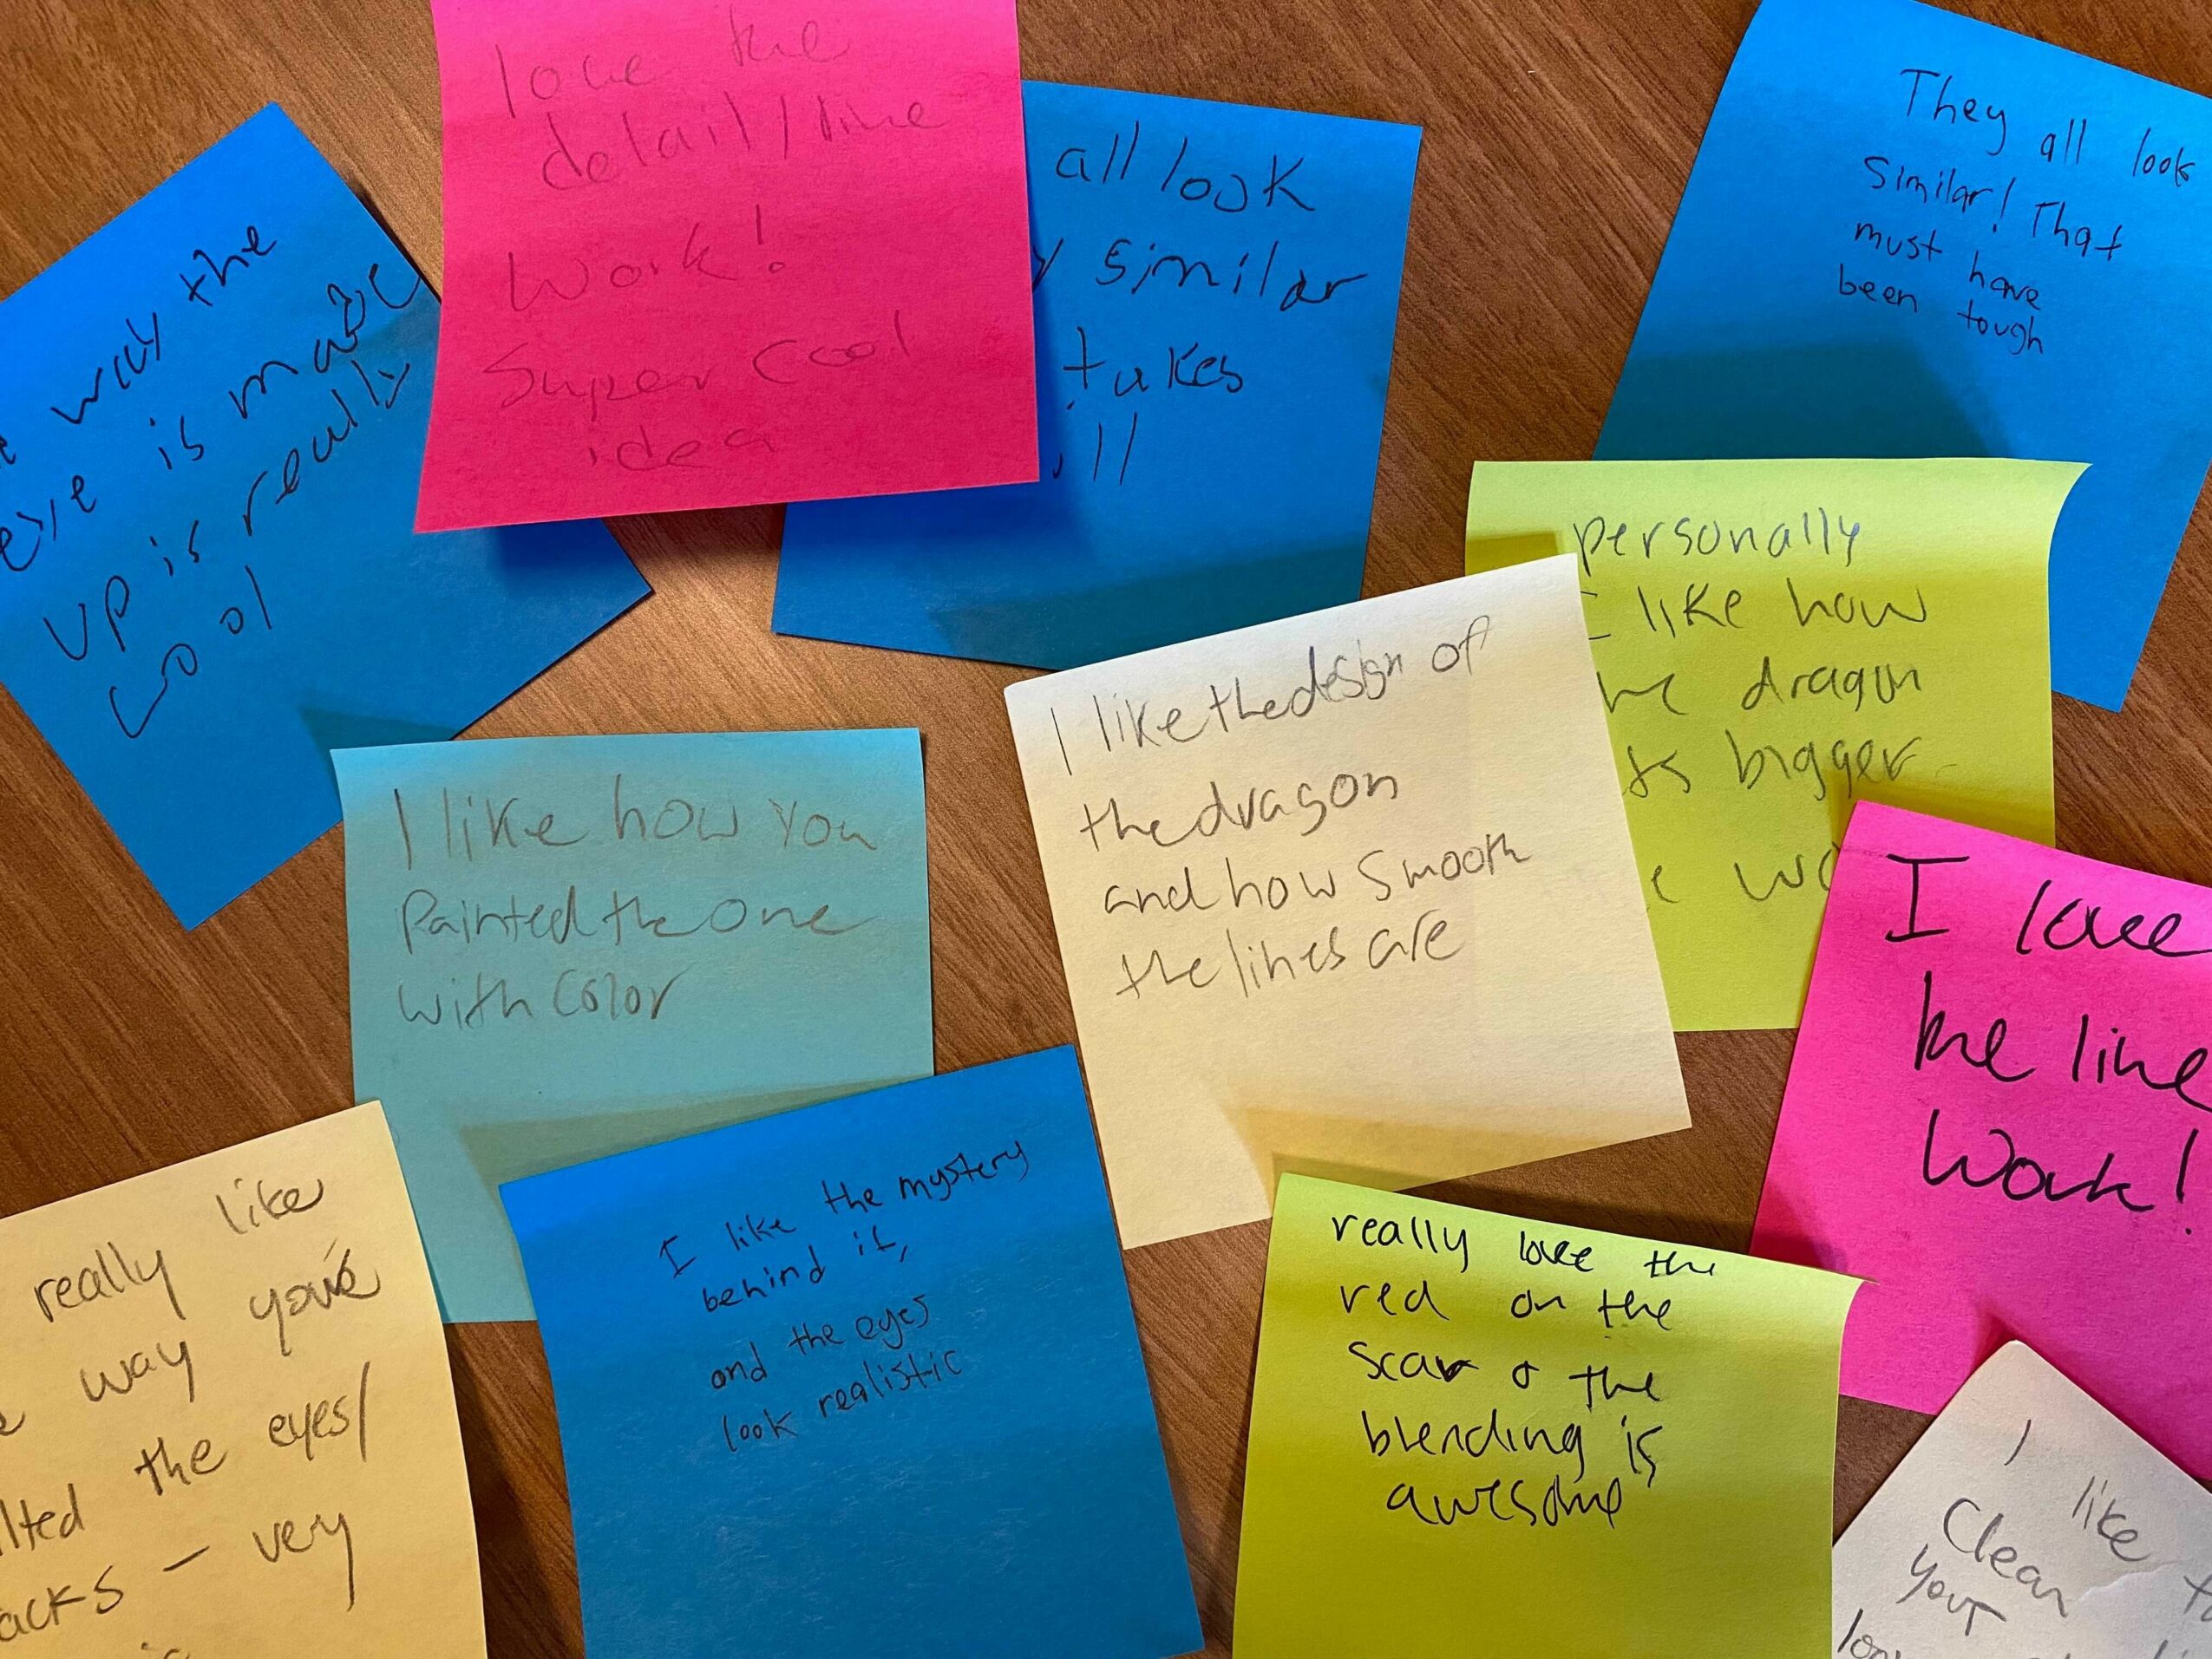 love the
detail/line
work!
Super cool
idea
way the
is made
up is really
cool
all look
similar
takes
They all look
Similar! That
must have
been tough
personally
like how
dragon
bigger
I like the design of
the dragon
and how smooth
the lines are
I like how you
Painted the one
with color
I love
the line
Work!
really like
way you've
the eyes/
– very
I like the mystery
behind it,
and the eyes
look realistic
really love the
red on the
scar & the
blending is
awesome
I like
Clean
your